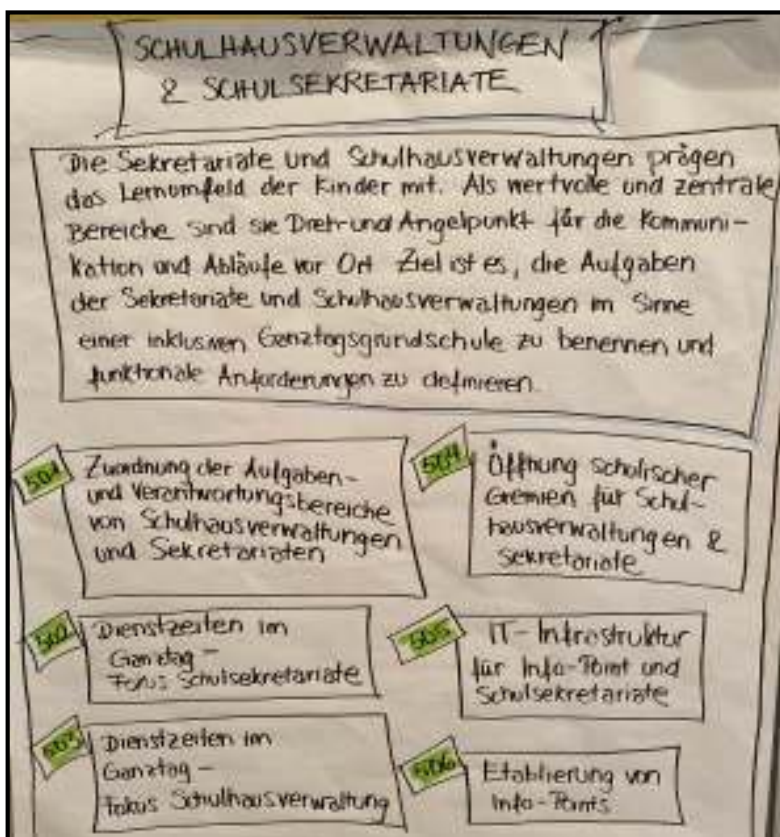 SCHULHAUSVERWALTUNGEN
& SCHULSEKRETARIATE
Die Sekretariate und Schulhausverwaltungen prägen
das Lernumfeld der Kinder mit. Als wertvolle und zentrale
Bereiche sind sie Dreh- und Angelpunkt für die Kommuni-
kation und Abläufe vor Ort Ziel ist es, die Aufgaben
der Sekretariate und Schulhausverwaltungen im Sinne
einer inklusiven Ganztagsgrundschule zu benennen und
funktionale Anforderungen zu definieren.
501 Zuordnung der Aufgaben-
und Verantwortungsbereiche
von Schulhausverwaltungen
und Sekretariaten
502 Dienstzeiten im
Ganztag –
Fokus Schulsekretariate
503 Dienstzeiten im
Ganztag –
Fokus Schulhausverwaltung
504 Öffnung schulischer
Gremien für Schul-
hausverwaltungen &
Sekretariate
505 IT-Infrastruktur
für Info-Point und
Schulsekretariate
506 Etablierung von
Info-Points